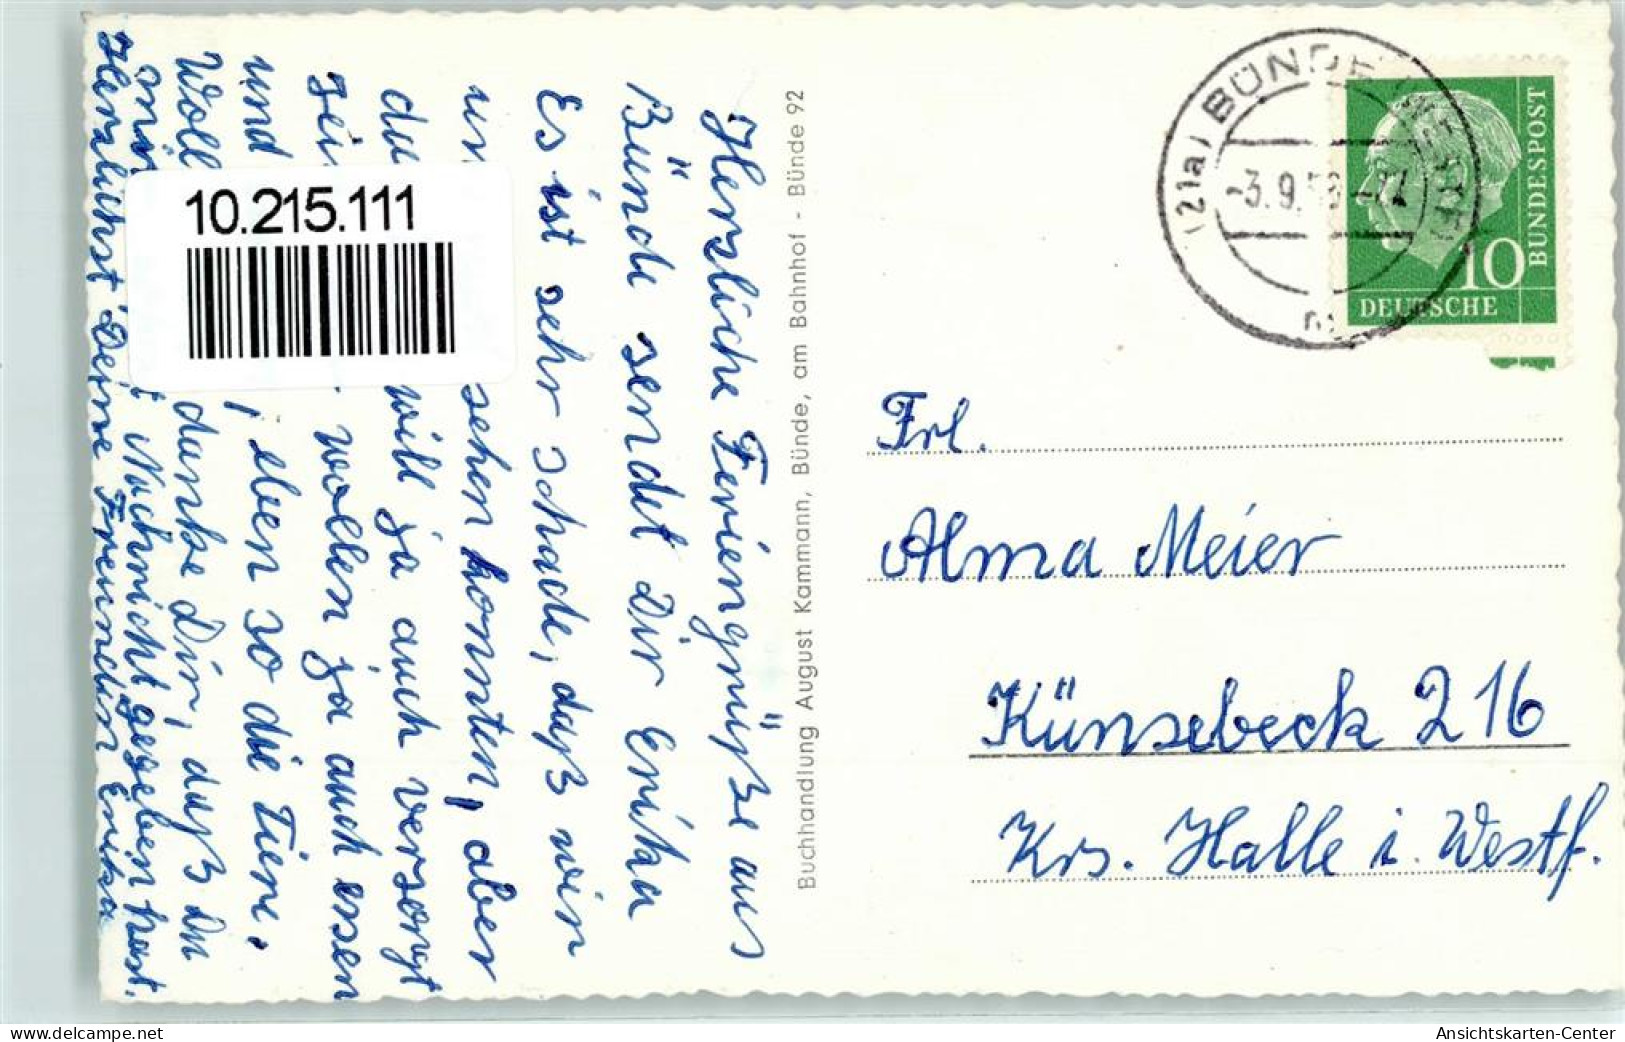 Herzliche Feriengrüße aus
Bünde sendet Dir Erika
Es ist sehr schade, daß wir
un sehen konnten, aber
du will ja auch versorgt
sei wollen ja auch essen
und , eben so die Tiere.
Woll danke Dir, daß Du
mir Nachricht gegeben hast.
Herzlichst Deine Freundin Erika
10.215.111
Buchhandlung August Kammann, Bünde, am Bahnhof - Bünde 92
(21a) BÜNDE
-3.9.
10
DEUTSCHE
BUNDESPOST
Frl.
Alma Meier
Künsebeck 216
Krs. Halle i. Westf.
www.delcampe.net
Ansichtskarten-Center